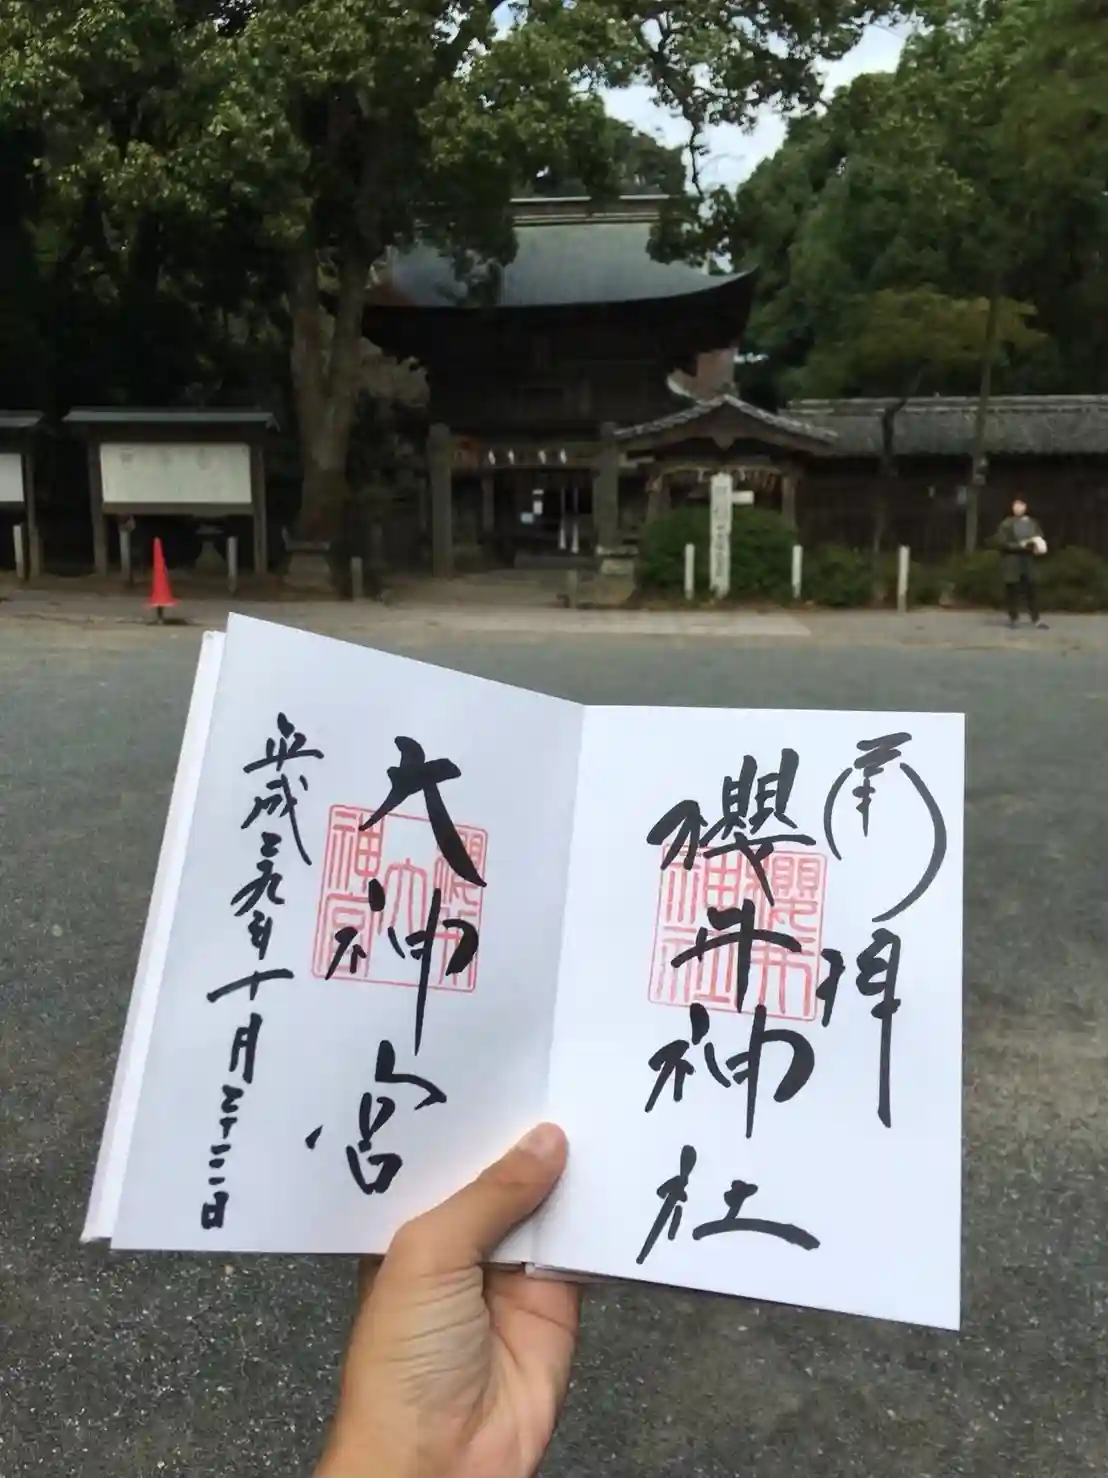 奉拝
櫻井神社
櫻井神社
大神宮
櫻井大神宮
平成二九年十月二十二日